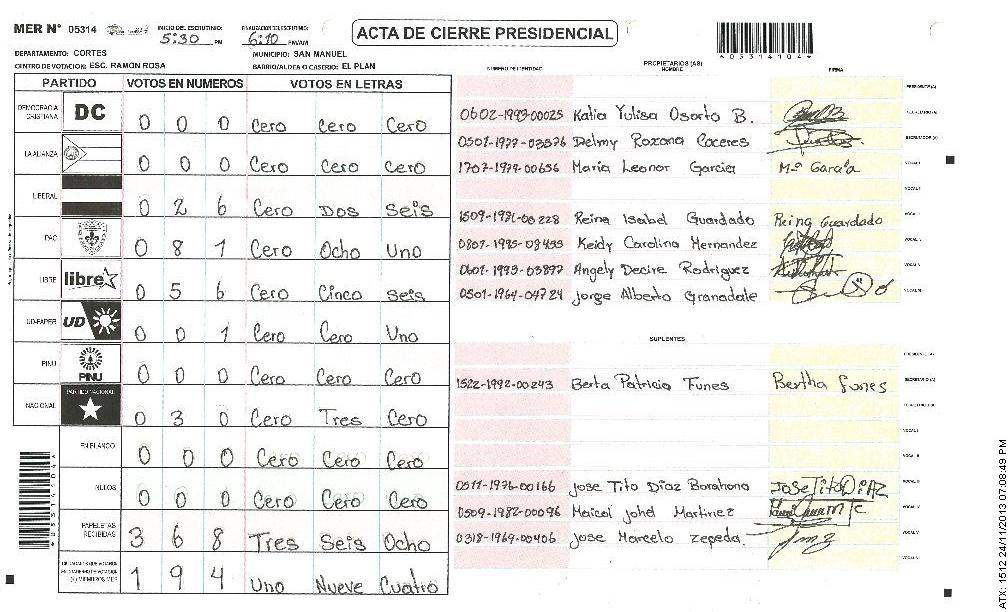 MER Nº 05314
INICIO DEL ESCRUTINIO:
5:30 PM
FINALIZACION DEL ESCRUTINIO:
6:10 PM/AM
ACTA DE CIERRE PRESIDENCIAL
*05314104*
DEPARTAMENTO: CORTES
MUNICIPIO: SAN MANUEL
CENTRO DE VOTACION: ESC. RAMON ROSA
BARRIO/ALDEA O CASERIO: EL PLAN
PARTIDO VOTOS EN NUMEROS VOTOS EN LETRAS
DEMOCRACIA CRISTIANA DC 0 0 0 Cero Cero Cero
LA ALIANZA 0 0 0 Cero Cero Cero
LIBERAL 0 2 6 Cero Dos Seis
PAC 0 8 1 Cero Ocho Uno
LIBRE libre 0 5 6 Cero Cinco Seis
UD-FAPER UD 0 0 1 Cero Cero Uno
PINU PINU 0 0 0 Cero Cero Cero
NACIONAL PARTIDO NACIONAL 0 3 0 Cero Tres Cero
EN BLANCO 0 0 0 Cero Cero Cero
NULOS 0 0 0 Cero Cero Cero
PAPELETAS RECIBIDAS 3 6 8 Tres Seis Ocho
CIUDADANOS QUE VOTARON
(+) MIEMBROS MER 1 9 4 Uno Nueve Cuatro
*05314104*
NUMERO DE IDENTIDAD PROPIETARIOS (AS) NOMBRE FIRMA
PRESIDENTE (A)
0602-1993-00025 Katia Yulisa Osorto B.
Delmy Roxana Caceres
1707-1977-00656 Maria Leonor Garcia Mª Garcia VOCAL I
VOCAL II
1509-1981-00228 Reina Isabel Guardado Reina Guardado
Keidy Carolina Hernandez
0601-1993-03897 Angely Decire Rodriguez
0501-1964-04724 Jorge Alberto Granadale
SUPLENTES
PRESIDENTE (A)
1522-1992-00243 Berta Patricia Funes Bertha Funes SECRETARIO (A)
VOCAL I
VOCAL II
0511-1976-00166 Jose Tito Diaz Barahona Jose Tito Diaz
0509-1982-00096 Maicol Johel Martinez
0318-1969-00406 Jose Marcelo Zepeda
ATX: 1512 24/11/2013 07:08:49 PM